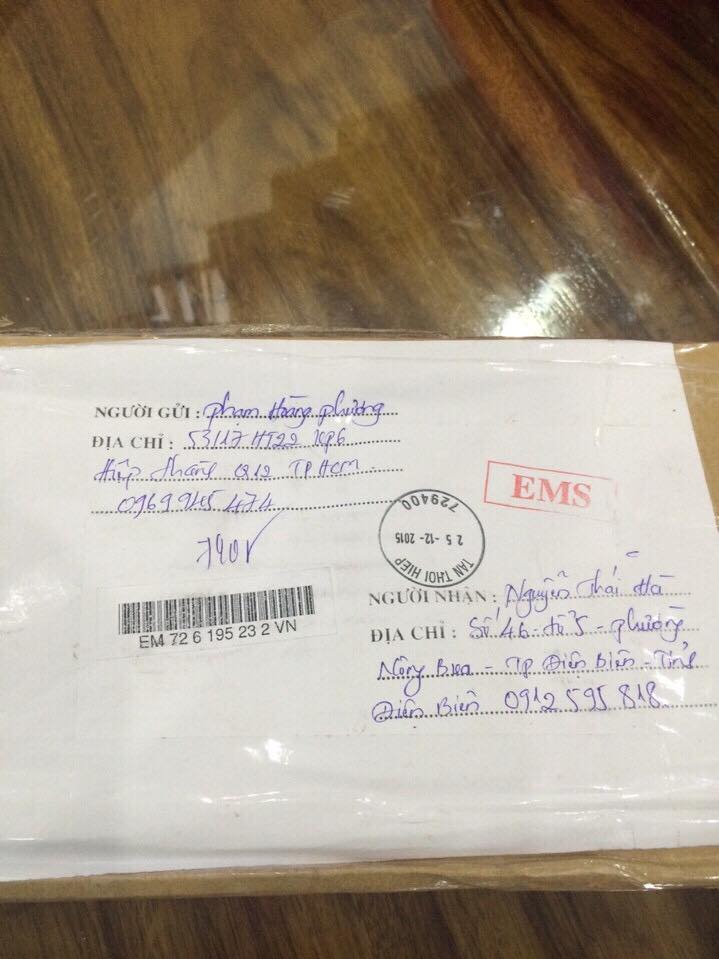 NGƯỜI GỬI : Phạm Hoàng Phương
ĐỊA CHỈ : 53/17 HT22 KP6
Hiệp Thành Q12 TP HCM
0969 945 474
EMS
729400
25-12-2015
TAN THOI HIEP
EM 72 6 195 23 2 VN
NGƯỜI NHẬN : Nguyễn Thái Hà
ĐỊA CHỈ : Số 46 - tổ 5 - phường
Nông Bua - TP Điện Biên - Tỉnh
Điện Biên 0912 595 818